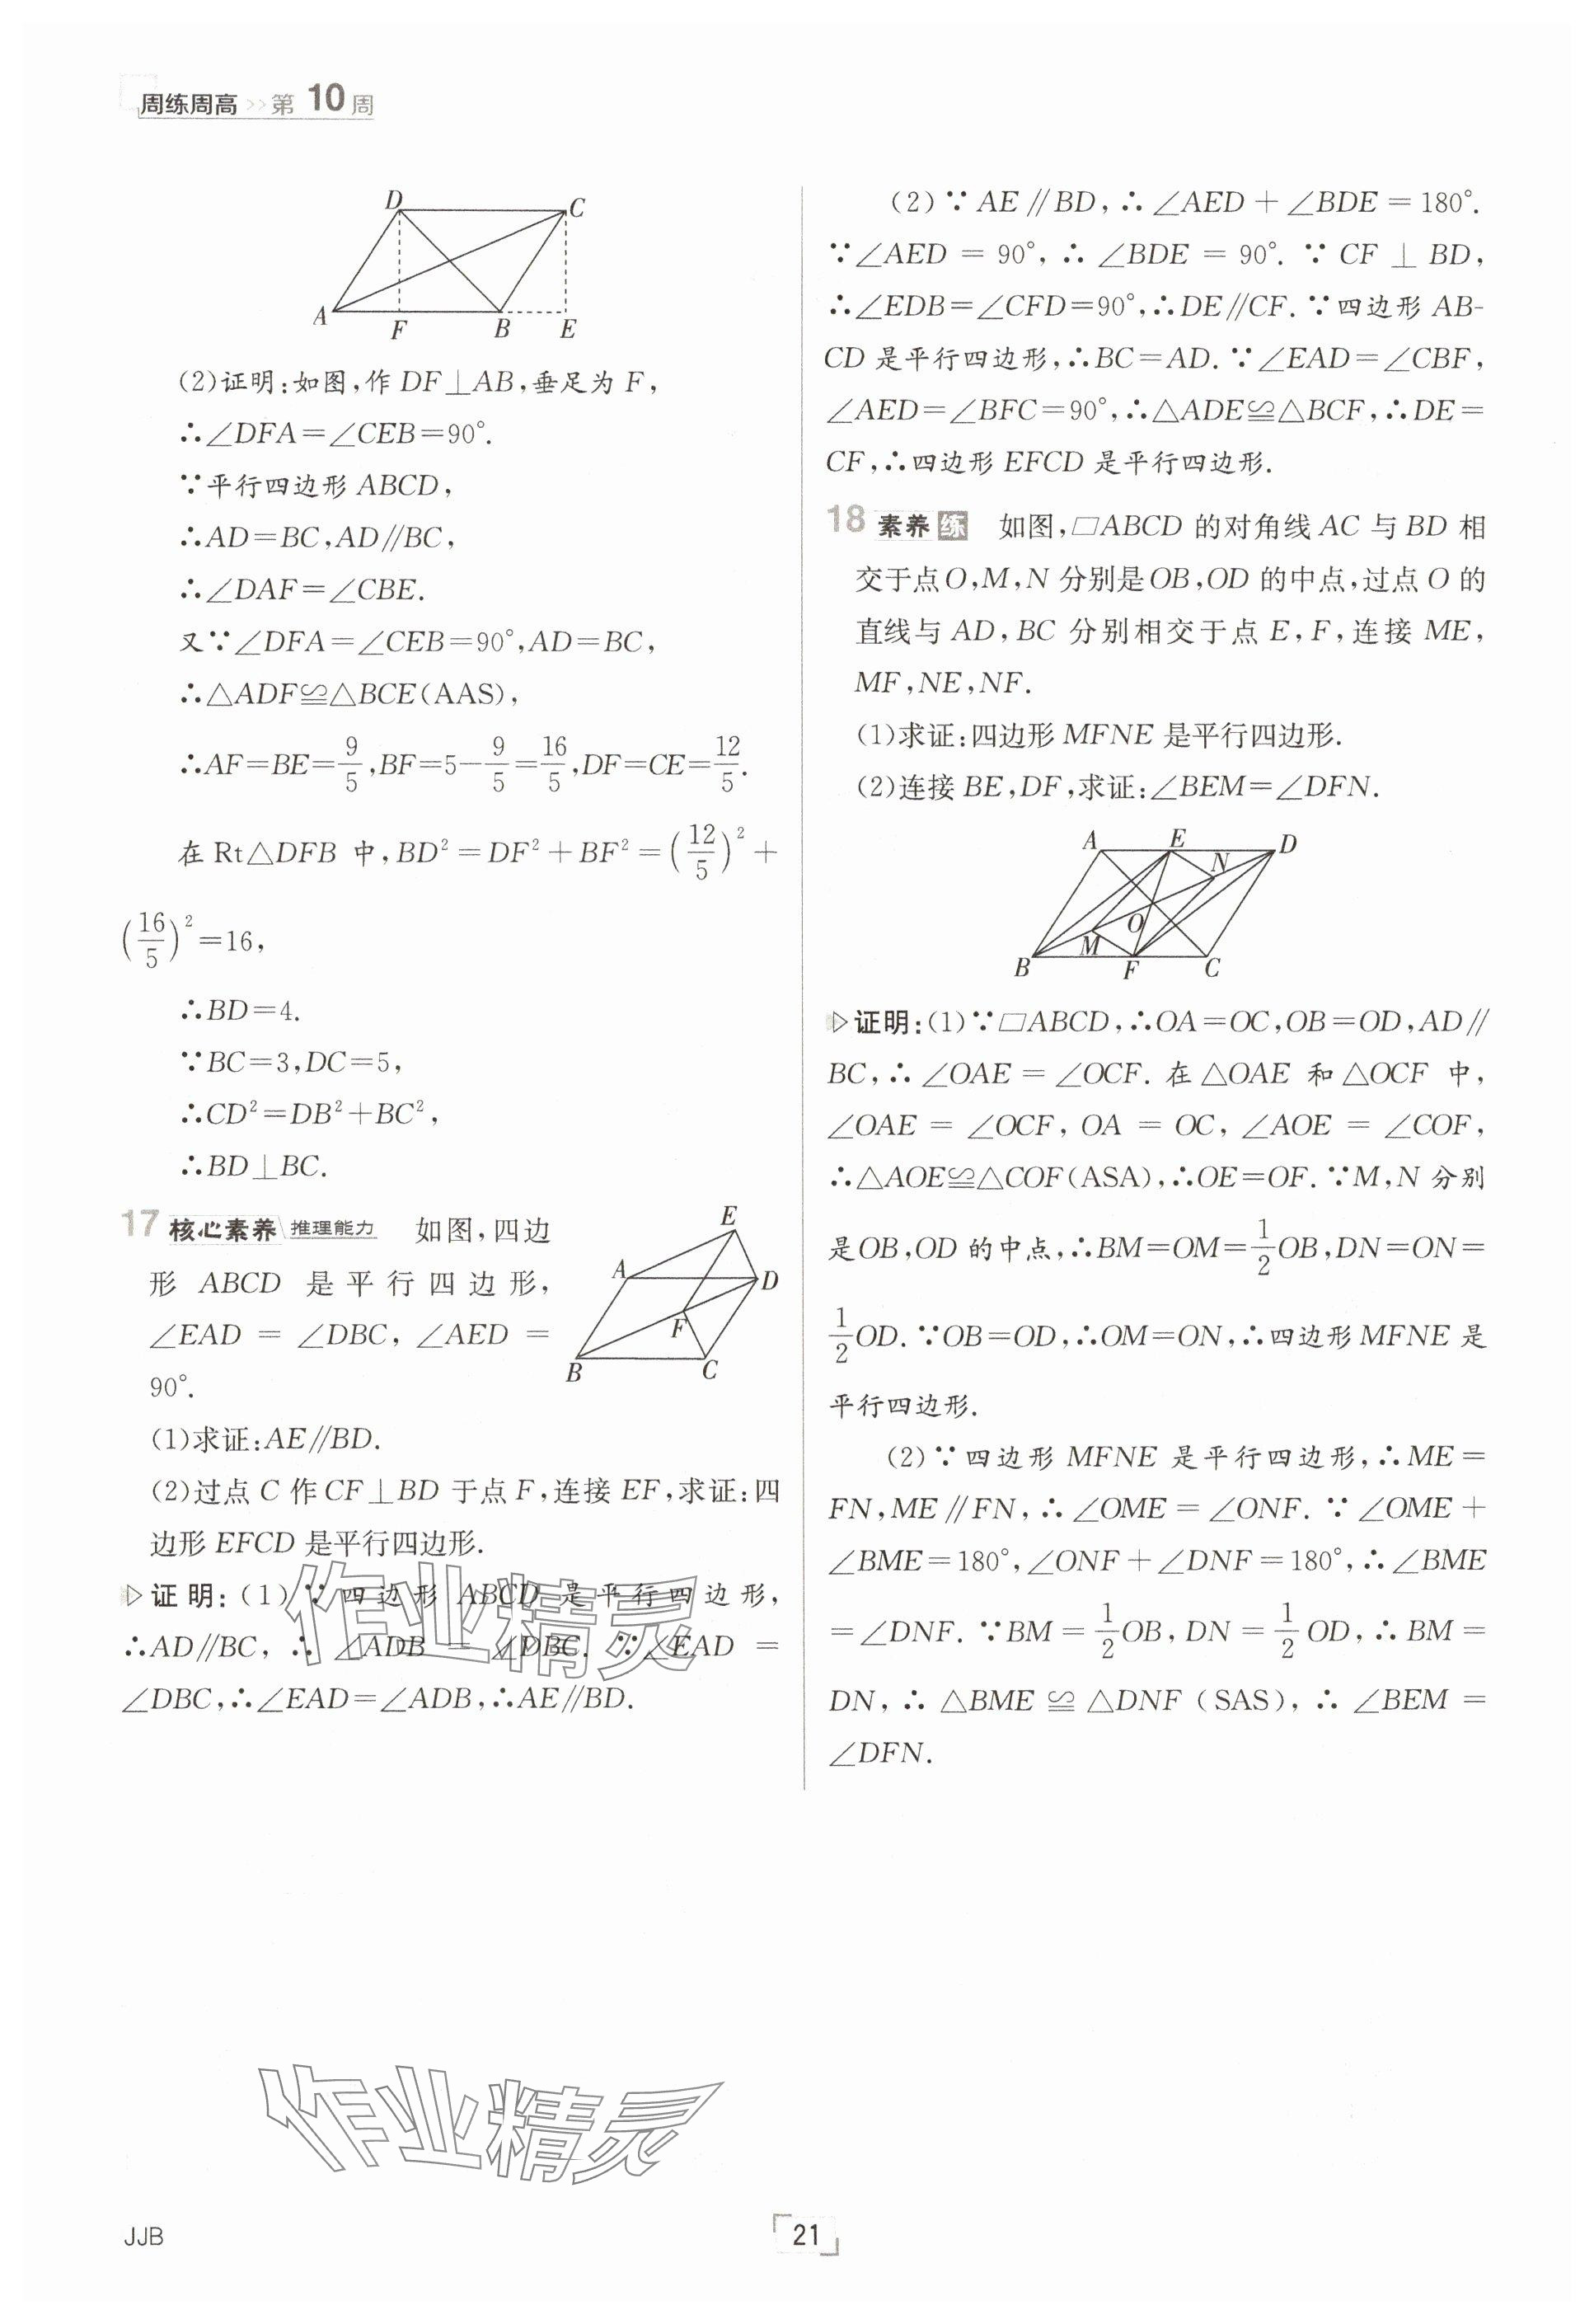 周练周高 >> 第10周
D
C
A
F
B
E
(2)证明:如图,作 DF⊥AB,垂足为 F,
∴∠DFA=∠CEB=90°.
∵平行四边形 ABCD,
∴AD=BC,AD∥BC,
∴∠DAF=∠CBE.
又∵∠DFA=∠CEB=90°,AD=BC,
∴△ADF≌△BCE(AAS),
∴AF=BE=9/5,BF=5-9/5=16/5,DF=CE=12/5.
在 Rt△DFB 中,BD²=DF²+BF²=(12/5)²+
(16/5)²=16,
∴BD=4.
∵BC=3,DC=5,
∴CD²=DB²+BC²,
∴BD⊥BC.
17 核心素养 推理能力 如图,四边
形 ABCD 是平行四边形,
∠EAD = ∠DBC, ∠AED =
90°.
E
A
D
F
B
C
(1)求证:AE∥BD.
(2)过点 C 作 CF⊥BD 于点 F,连接 EF,求证:四
边形 EFCD 是平行四边形.
▷证明:(1)∵四边形 ABCD 是平行四边形,
∴AD∥BC, ∴∠ADB = ∠DBC. ∵∠EAD =
∠DBC,∴∠EAD=∠ADB,∴AE∥BD.
(2)∵AE∥BD,∴∠AED+∠BDE=180°.
∵∠AED = 90°, ∴∠BDE = 90°. ∵CF⊥BD,
∴∠EDB=∠CFD=90°,∴DE∥CF.∵四边形 AB-
CD 是平行四边形,∴BC=AD.∵∠EAD=∠CBF,
∠AED=∠BFC=90°,∴△ADE≌△BCF,∴DE=
CF,∴四边形 EFCD 是平行四边形.
18 素养练 如图,▱ABCD 的对角线 AC 与 BD 相
交于点O,M,N 分别是OB,OD 的中点,过点 O 的
直线与 AD,BC 分别相交于点 E,F,连接 ME,
MF,NE,NF.
(1)求证:四边形 MFNE 是平行四边形.
(2)连接 BE,DF,求证:∠BEM=∠DFN.
A
E
D
N
O
M
B
F
C
▷证明:(1)∵▱ABCD,∴OA=OC,OB=OD,AD∥
BC,∴∠OAE=∠OCF. 在△OAE 和△OCF 中,
∠OAE = ∠OCF, OA = OC, ∠AOE = ∠COF,
∴△AOE≌△COF(ASA),∴OE=OF.∵M,N 分别
是OB,OD 的中点,∴BM=OM=1/2OB,DN=ON=
1/2OD.∵OB=OD,∴OM=ON,∴四边形 MFNE 是
平行四边形.
(2)∵四边形 MFNE 是平行四边形,∴ME=
FN,ME∥FN,∴∠OME=∠ONF.∵∠OME+
∠BME=180°,∠ONF+∠DNF=180°,∴∠BME
=∠DNF.∵BM=1/2OB,DN=1/2OD,∴BM=
DN,∴△BME≌△DNF(SAS),∴∠BEM=
∠DFN.
作业精灵
作业精灵
JJB
21